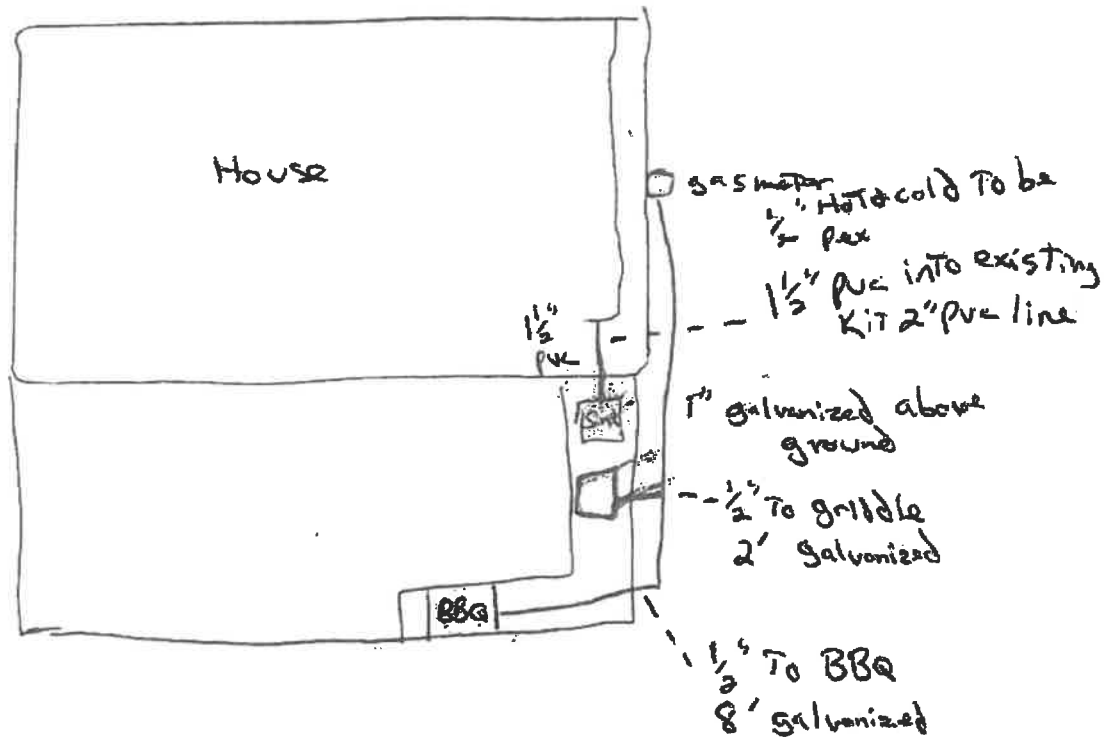 House
gas meter
1/2" Hot & cold To be
pex
1 1/2" pvc into existing
Kit 2" pvc line
1 1/2"
pvc
Sink
1" galvanized above
ground
1/2" To griddle
2' galvanized
BBQ
1/2" To BBQ
8' galvanized